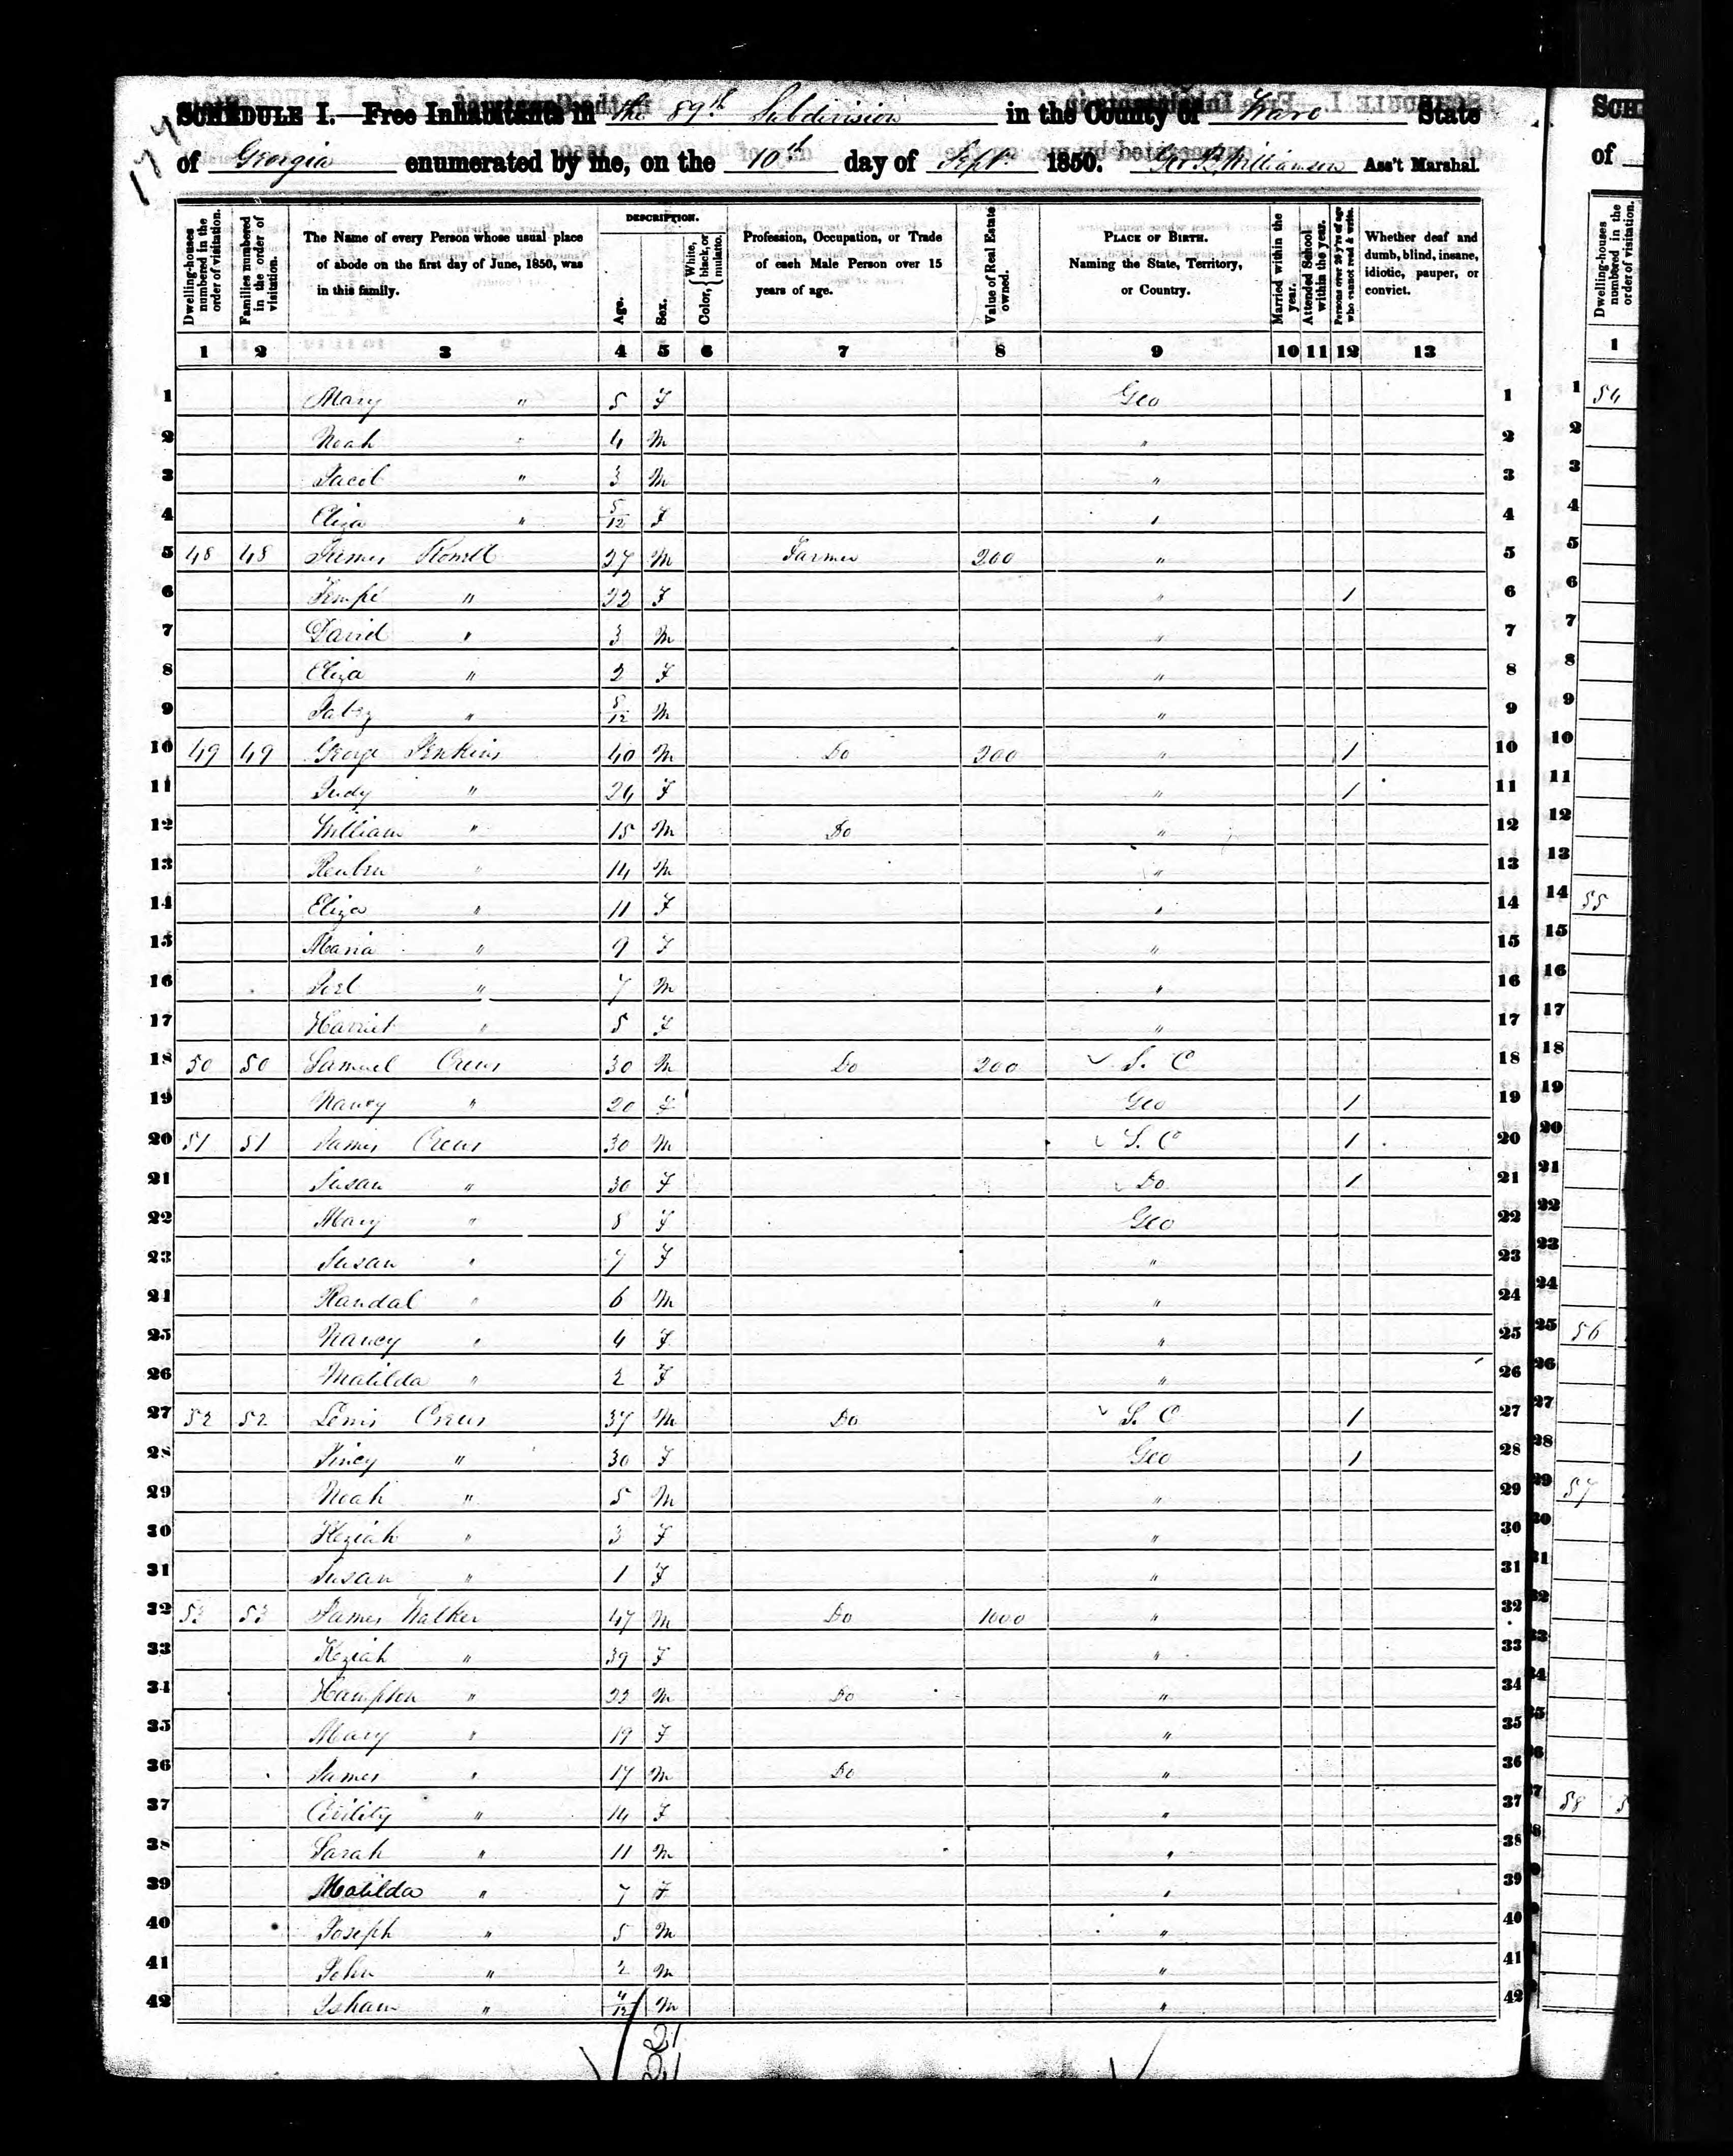 174
SCHEDULE I.—Free Inhabitants in the 89th Subdivision in the County of Ware State
of Georgia enumerated by me, on the 10th day of Sept. 1850. Geo R. Williamson Ass't Marshal.
Dwelling-houses numbered in the order of visitation. Families numbered in the order of visitation. The Name of every Person whose usual place of abode on the first day of June, 1850, was in this family. DESCRIPTION. Age. Sex. Color, { White, black, or mulatto. Profession, Occupation, or Trade of each Male Person over 15 years of age. Value of Real Estate owned. PLACE OF BIRTH. Naming the State, Territory, or Country. Married within the year. Attended School within the year. Persons over 20 y'rs of age who cannot read & write. Whether deaf and dumb, blind, insane, idiotic, pauper, or convict.
1 2 3 4 5 6 7 8 9 10 11 12 13
1 Mary " 5 F Geo 1
2 Noah " 4 M " 2
3 Jacob " 3 M " 3
4 Eliza " 5/12 F " 4
5 48 48 James 27 M Farmer 200 " 5
6 Tempe " 22 F " 1 6
7 David " 3 M " 7
8 Eliza " 2 F " 8
9 " 5/12 M " 9
10 49 49 George Jenkins 40 M Do 200 " 1 10
11 Judy " 24 F " 1 11
12 William " 15 M Do " 12
13 Reubin " 14 M " 13
14 Eliza " 11 F " 14
15 Maria " 9 F " 15
16 Joel " 7 M " 16
17 Harriet " 5 F " 17
18 50 50 Samuel Crews 30 M Do 200 S. C 18
19 Nancy " 20 F Geo 1 19
20 51 51 James Crews 30 M S. C 1 20
21 Susan " 30 F Do 1 21
22 Mary " 8 F Geo 22
23 Susan " 7 F " 23
24 Randal " 6 M " 24
25 Nancy " 4 F " 25
26 Matilda " 2 F " 26
27 52 52 Lewis Crews 37 M Do S. C 1 27
28 Piney " 30 F Geo 1 28
29 Noah " 5 M " 29
30 Keziah " 3 F " 30
31 Susan " 1 F " 31
32 53 53 James Walker 47 M Do 1000 " 32
33 Keziah " 39 F " 33
34 Hampton " 22 M Do " 34
35 Mary " 19 F " 35
36 James " 17 M Do " 36
37 Civility " 14 F " 37
38 Sarah " 11 M " 38
39 Matilda " 7 F " 39
40 Joseph " 5 M " 40
41 John " 2 M " 41
42 Isham " /12 M " 42
21
21
SCH
of
Dwelling-houses numbered in the order of visitation.
1
1 54
2
3
4
5
6
7
8
9
10
11
12
13
14 55
15
16
17
18
19
20
21
22
23
24
25 56
26
27
28
29 57
30
31
32
33
34
35
36
37 58 5
38